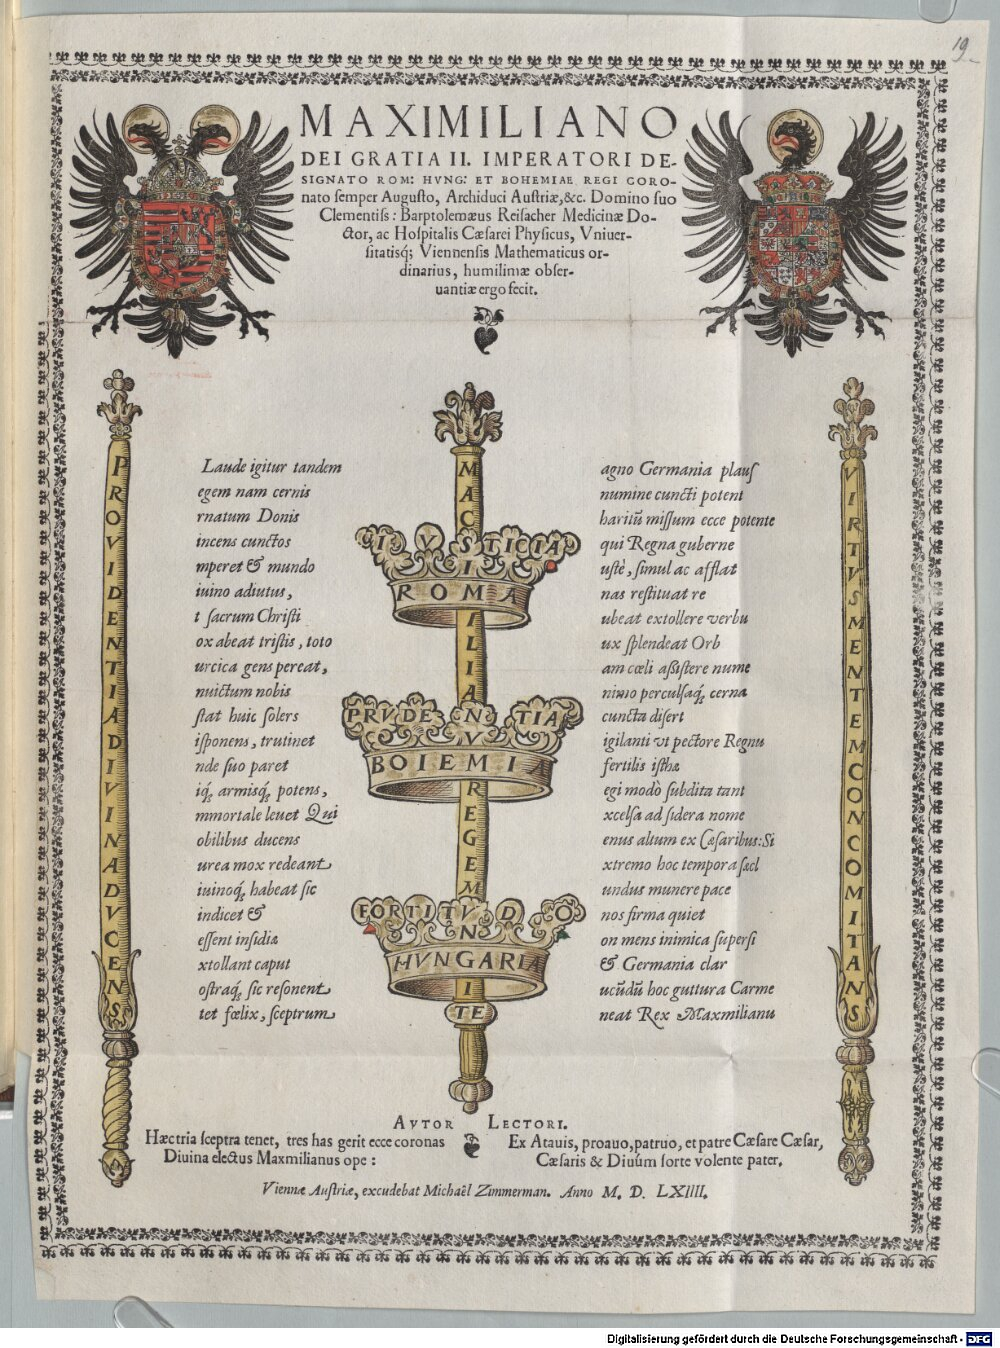 19
MAXIMILIANO
DEI GRATIA II. IMPERATORI DE-
SIGNATO ROM: HVNG: ET BOHEMIAE REGI CORO-
nato semper Augusto, Archiduci Austriæ,&c. Domino suo
Clementiss: Barptolemæus Reisacher Medicinæ Do-
ctor, ac Hospitalis Cæsarei Physicus, Vniuer-
sitatisq́; Viennensis Mathematicus or-
dinarius, humilimæ obser-
uantiæ ergo fecit.
PROVIDENTIA DIVINA DVCENS
Laude igitur tandem
egem nam cernis
rnatum Donis
incens cunctos
mperet & mundo
iuino adiutus,
t sacrum Christi
ox abeat tristis, toto
urcica gens pereat,
nuictum nobis
stat huic solers
isponens, trutinet
nde suo paret
iq́; armisq́; potens,
mmortale leuet Qui
obilibus ducens
urea mox redeant
iuinoq́; habeat sic
indicet &
essent insidiæ
xtollant caput
ostraq́; sic resonent
tet fœlix, sceptrum
MACSIMILIANVM REGEM VNITE
IVSTICIA
ROMA
PRVDENTIA
BOIEMIA
FORTITVDO
HVNGARIA
agno Germania plaus
numine cuncti potent
haritū missum ecce potente
qui Regna guberne
ustè, simul ac afflat
nas restituat re
ubeat extollere verbu
ux splendeat Orb
am cœli assistere nume
nimo perculsaq́; cerna
cuncta disert
igilanti vt pectore Regnu
fertilis isthæ
egi modò subdita tant
xcelsa ad sidera nome
enus altum ex Cæsaribus:Si
xtremo hoc tempora sæcl
undus munere pace
nos firma quiet
on mens inimica supersi
& Germania clar
ucūdū hoc guttura Carme
neat Rex Maxmilianu
VIRTVS MENTEM CONCOMITANS
AVTOR LECTORI.
Hæc tria sceptra tenet, tres has gerit ecce coronas
Diuina electus Maxmilianus ope:
Ex Atauis, proauo, patruo, et patre Cæsare Cæsar,
Cæsaris & Diuûm sorte volente pater.
Viennæ Austriæ, excudebat Michaël Zimmerman. Anno M. D. LXIIII.
Digitalisierung gefördert durch die Deutsche Forschungsgemeinschaft - DFG